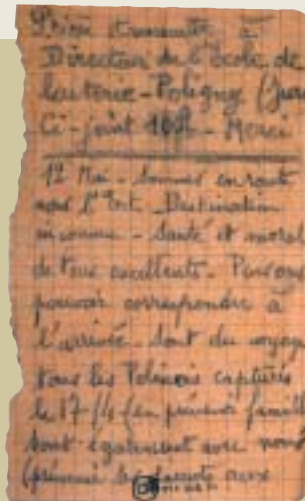 Prière transmettre à
Directeur de l'école de
laiterie - Poligny (Jura
Ci-joint 10f - Merci
12 Mai - Sommes en route
vers l'Est. Destination
inconnue - Santé et moral
de tous excellents. Pensons
pouvoir correspondre à
l'arrivée. Sont du voyage
tous les Polinois capturés
le 17/4 (en prévenir famill
Sont également avec nous
(prévenir